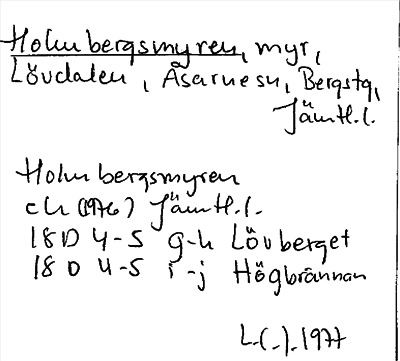 Holmbergsmyren, myr,
Lövdalen, Åsarnes sn, Bergs tg,
Jämtl.l.
Holmbergsmyren
ek (1976) Jämtl.l.
18D 4-5 g-h Lövberget
18D 4-5 i-j Högbrännan
L.(.).1977